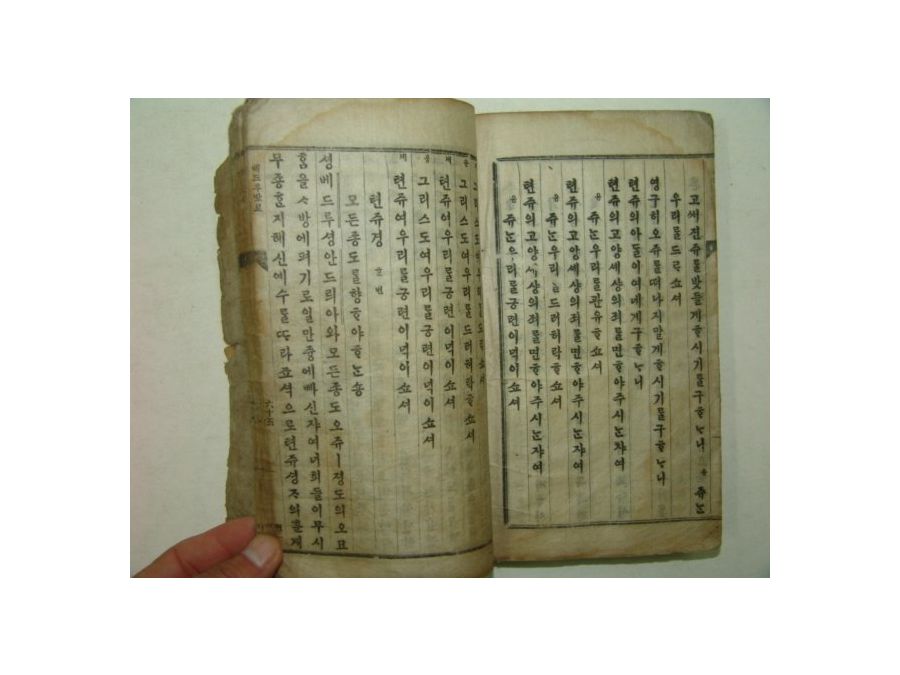 고쎄젼쥬를밧들게ᄒᆞ시기를구ᄒᆞᄂᆞ니 응 쥬ᄂᆞᆫ
우리를드르쇼셔
영구히오쥬를떠나지말게ᄒᆞ시기를구ᄒᆞᄂᆞ니
텬쥬의아들이여네게구ᄒᆞᄂᆞ니
텬쥬의고양세상의죄를면ᄒᆞ야주시ᄂᆞᆫ쟈여
응 쥬ᄂᆞᆫ우리를관유ᄒᆞ쇼셔
텬쥬의고양세상의죄를면ᄒᆞ야주시ᄂᆞᆫ쟈여
응 쥬ᄂᆞᆫ우리를드러허락ᄒᆞ쇼셔
텬쥬의고양세상의죄를면ᄒᆞ야주시ᄂᆞᆫ쟈여
응 쥬ᄂᆞᆫ우리를긍련이넉이쇼셔
그리스도여우리를드르쇼셔
응 그리스도여우리를드러허락ᄒᆞ쇼셔
계 텬쥬여우리를긍련이넉이쇼셔
응 그리스도여우리를긍련이넉이쇼셔
계 텬쥬여우리를긍련이넉이쇼셔
텬쥬경 ᄒᆞᆫ번
모든종도를향ᄒᆞ야ᄒᆞᄂᆞᆫ숑
셩베드루셩안드릐아와모든종도오쥬ㅣ졍도의오묘
ᄒᆞᆷ을ᄉᆞ방에펴기로일만즁에ᄲᅢ신쟈여너희들이무시
무죵ᄒᆞᆫ지혜신예수를ᄯᆞ라쇼셔으로텬쥬셩조의훈계